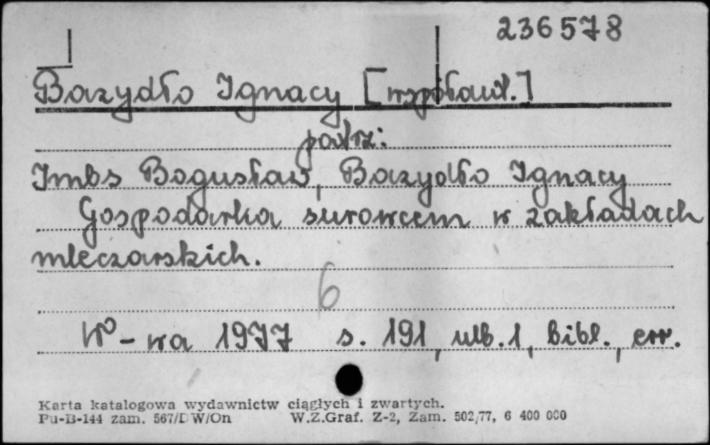 236578
Bazydło Ignacy [współaut.]
patrz:
Imbs Bogusław, Bazydło Ignacy
Gospodarka surowcem w zakładach
mleczarskich.
6
W-wa 1977 s. 191, ulb. 1, bibl., err.
Karta katalogowa wydawnictw ciągłych i zwartych.
Pu-B-144 zam. 567/DW/On W.Z.Graf. Z-2, Zam. 502,77, 6 400 000